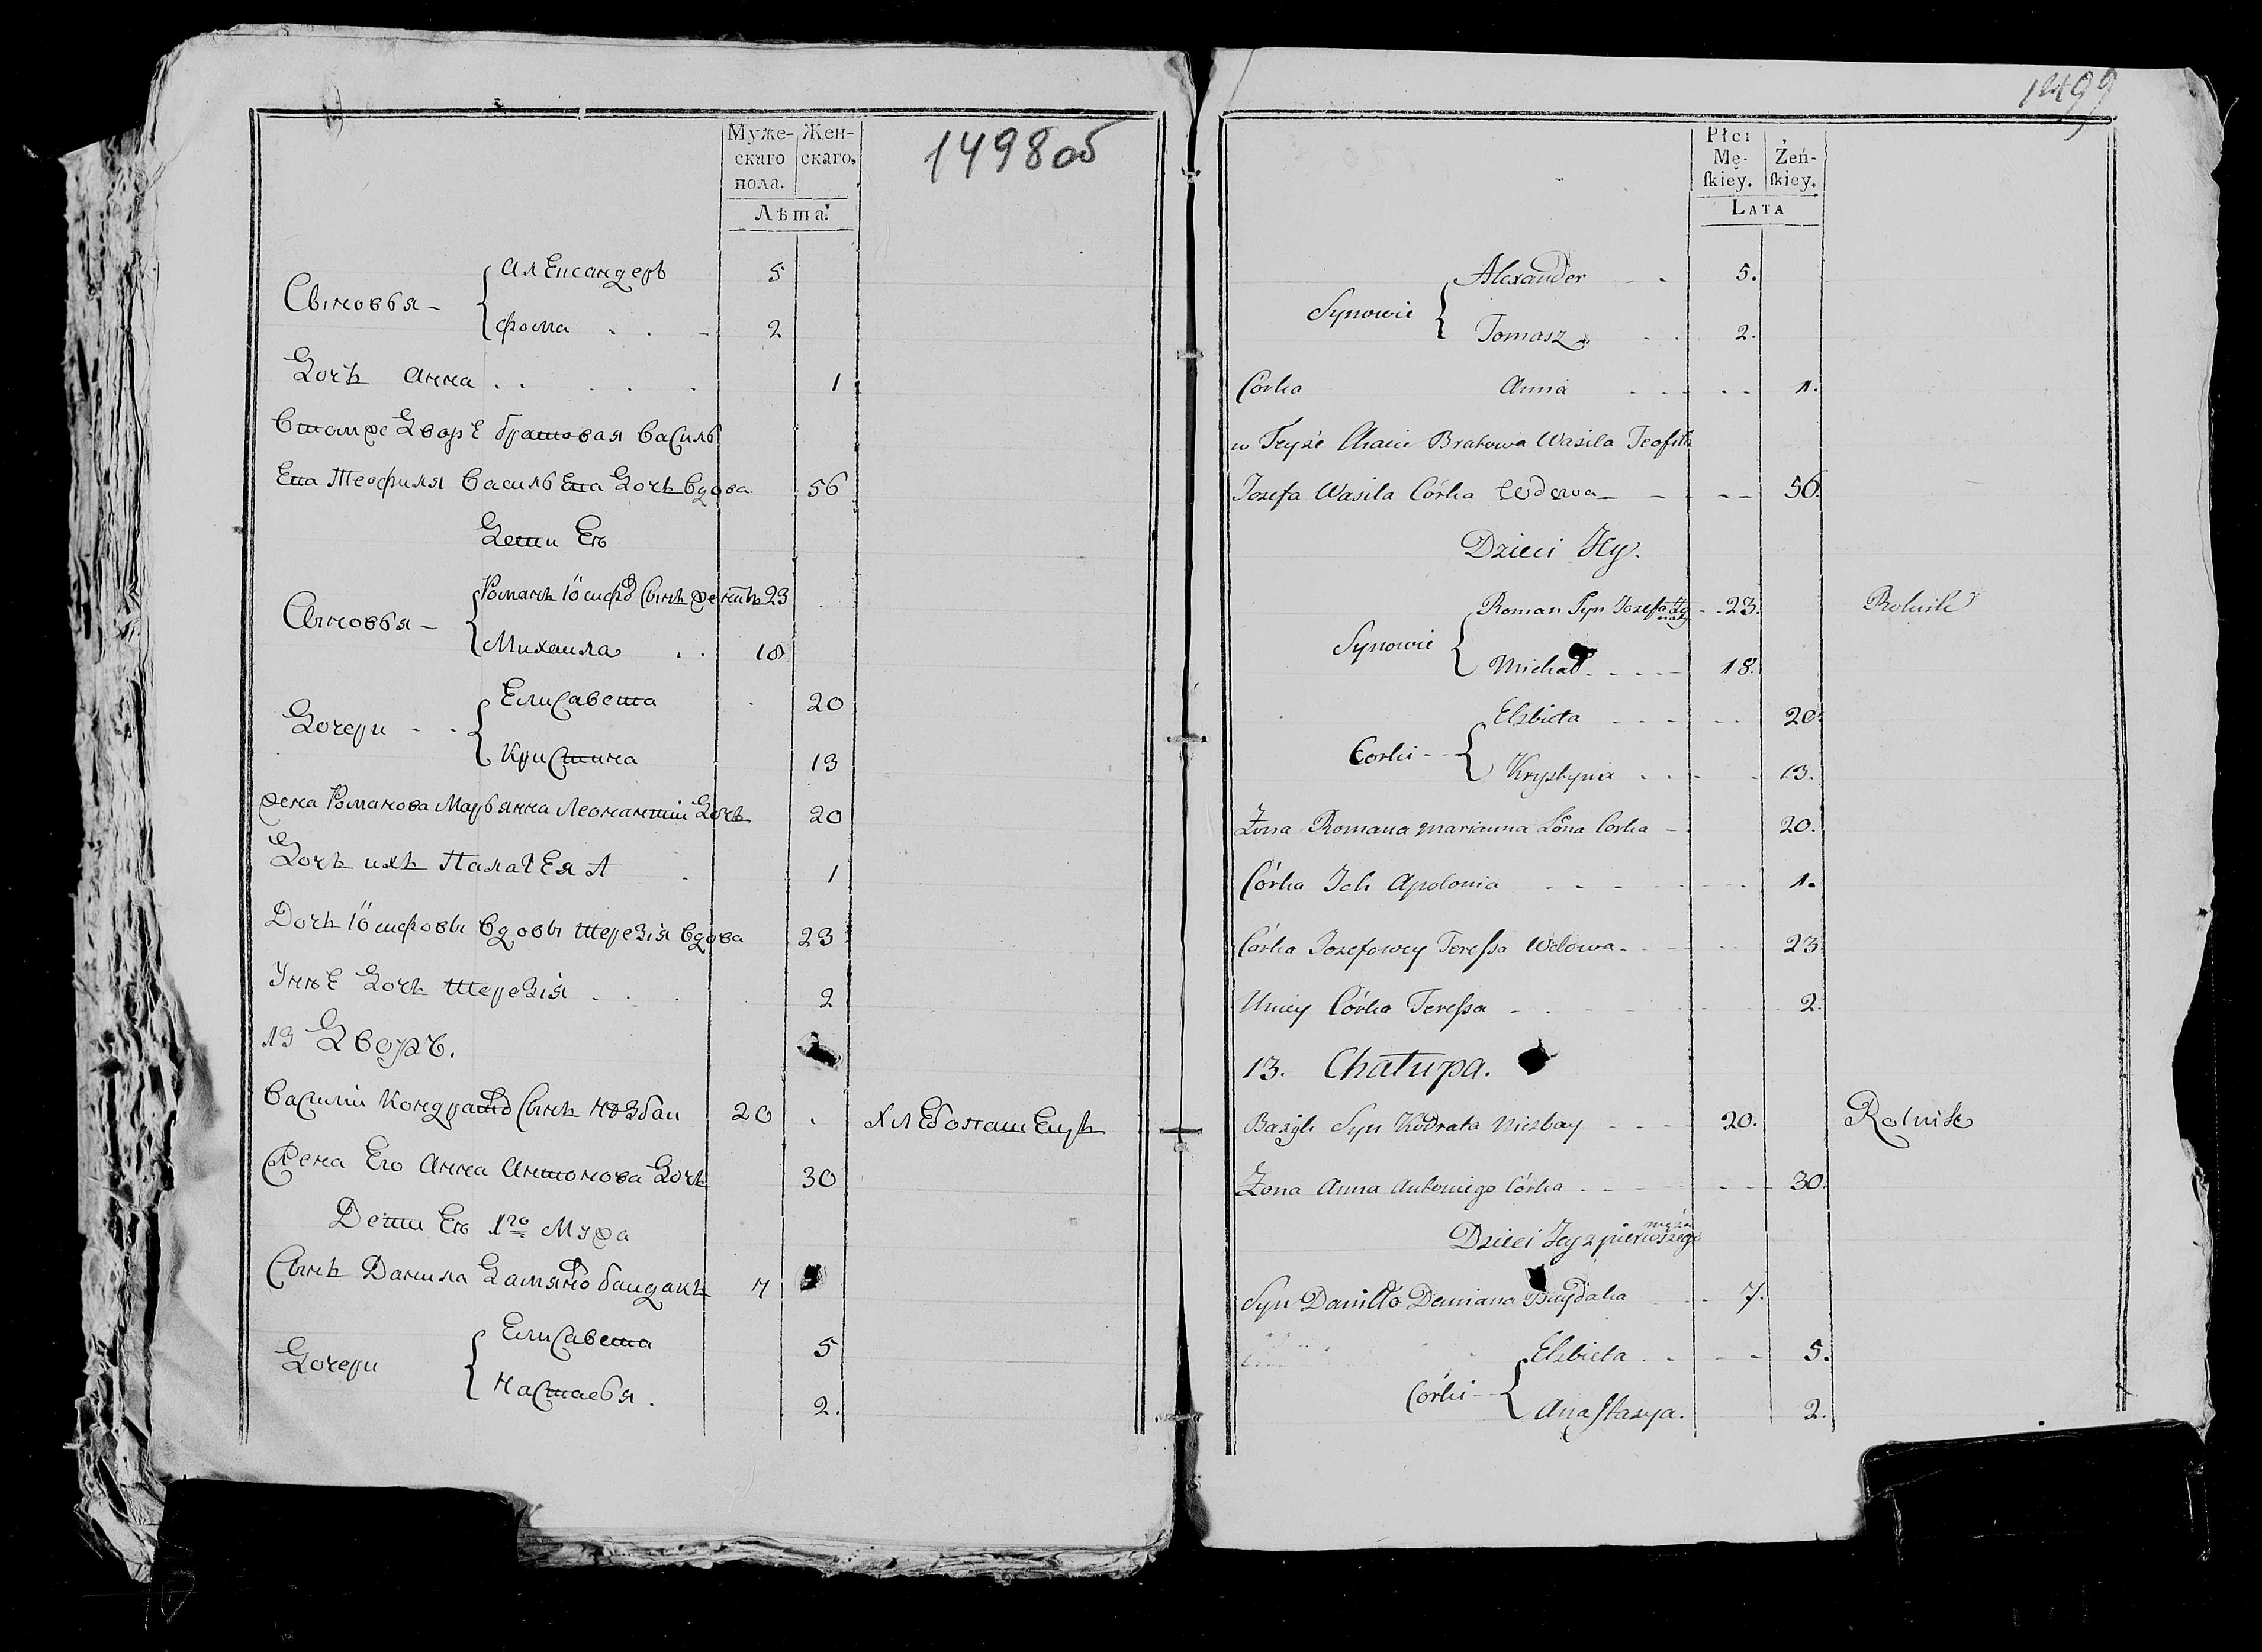 1498об
Муже-
скаго
пола.
Жен-
скаго,
Лѣта.
Сыновья -
Александеръ 5
Фома . . - 2
Дочъ Анна . . . . . 1
Втомже Дворе братовая Василь
Ева Теофиля Васильева Дочъ Вдова 56
Дети Ею
Сыновья -
Романъ Іосифа Сынъ женатъ 23
Михаила . . 18
Дочери - -
Елисавета 20
Кристина 13
жена Романова Марьянна Дочъ 20
Дочъ ихъ 1
Дочъ Іосифовы Вдовы Терезія Вдова 23
Унѣе Дочъ Терезія . . . 2
13 Дворъ.
Василий Кондрата Сынъ 20 Хлебопашецъ
Жена Его Анна Антонова Дочъ 30
Дети Ею 1го Мужа
Сынъ Данила 7
Дочери
Елисавета 5
Настасья . 2.
1499
Płci
Mę-
ſkiey.
Żeń-
ſkiey.
LATA
Synowie
Alexander - - 5.
Tomasz - - 2.
Córka Anna - - - - 1.
w Teyże Chacie Bratowa Wasila Teofila
Jozefa Wasila Córka Wdowa - - - - 56.
Dzieci Jey.
Synowie
Roman Syn Jozefa żonaty - - 23. Rolnik
Michał - - - - 18.
Corki - -
Elzbieta - - - - - 20.
Krystyna - - - - 13.
Żona Romana Marianna Córka - 20.
Córka Ich Apolonia - - - - - - 1.
Córka Jozefowey Tereſsa Wdowa - - - - 23.
Uniey Córka Tereſsa - - - - - 2.
13. Chałupa.
Bazyli Syn Kodrata Niezbay - - - 20. Rolnik
Żona Anna Antoniego Córka - - - - - - 30.
męża
Dzieci Jey z pierwszego
Syn Daniłło Demiana Baydaka - - 7.
Córki -
Elzbieta - - - - 5.
Anaſtasya. 2.